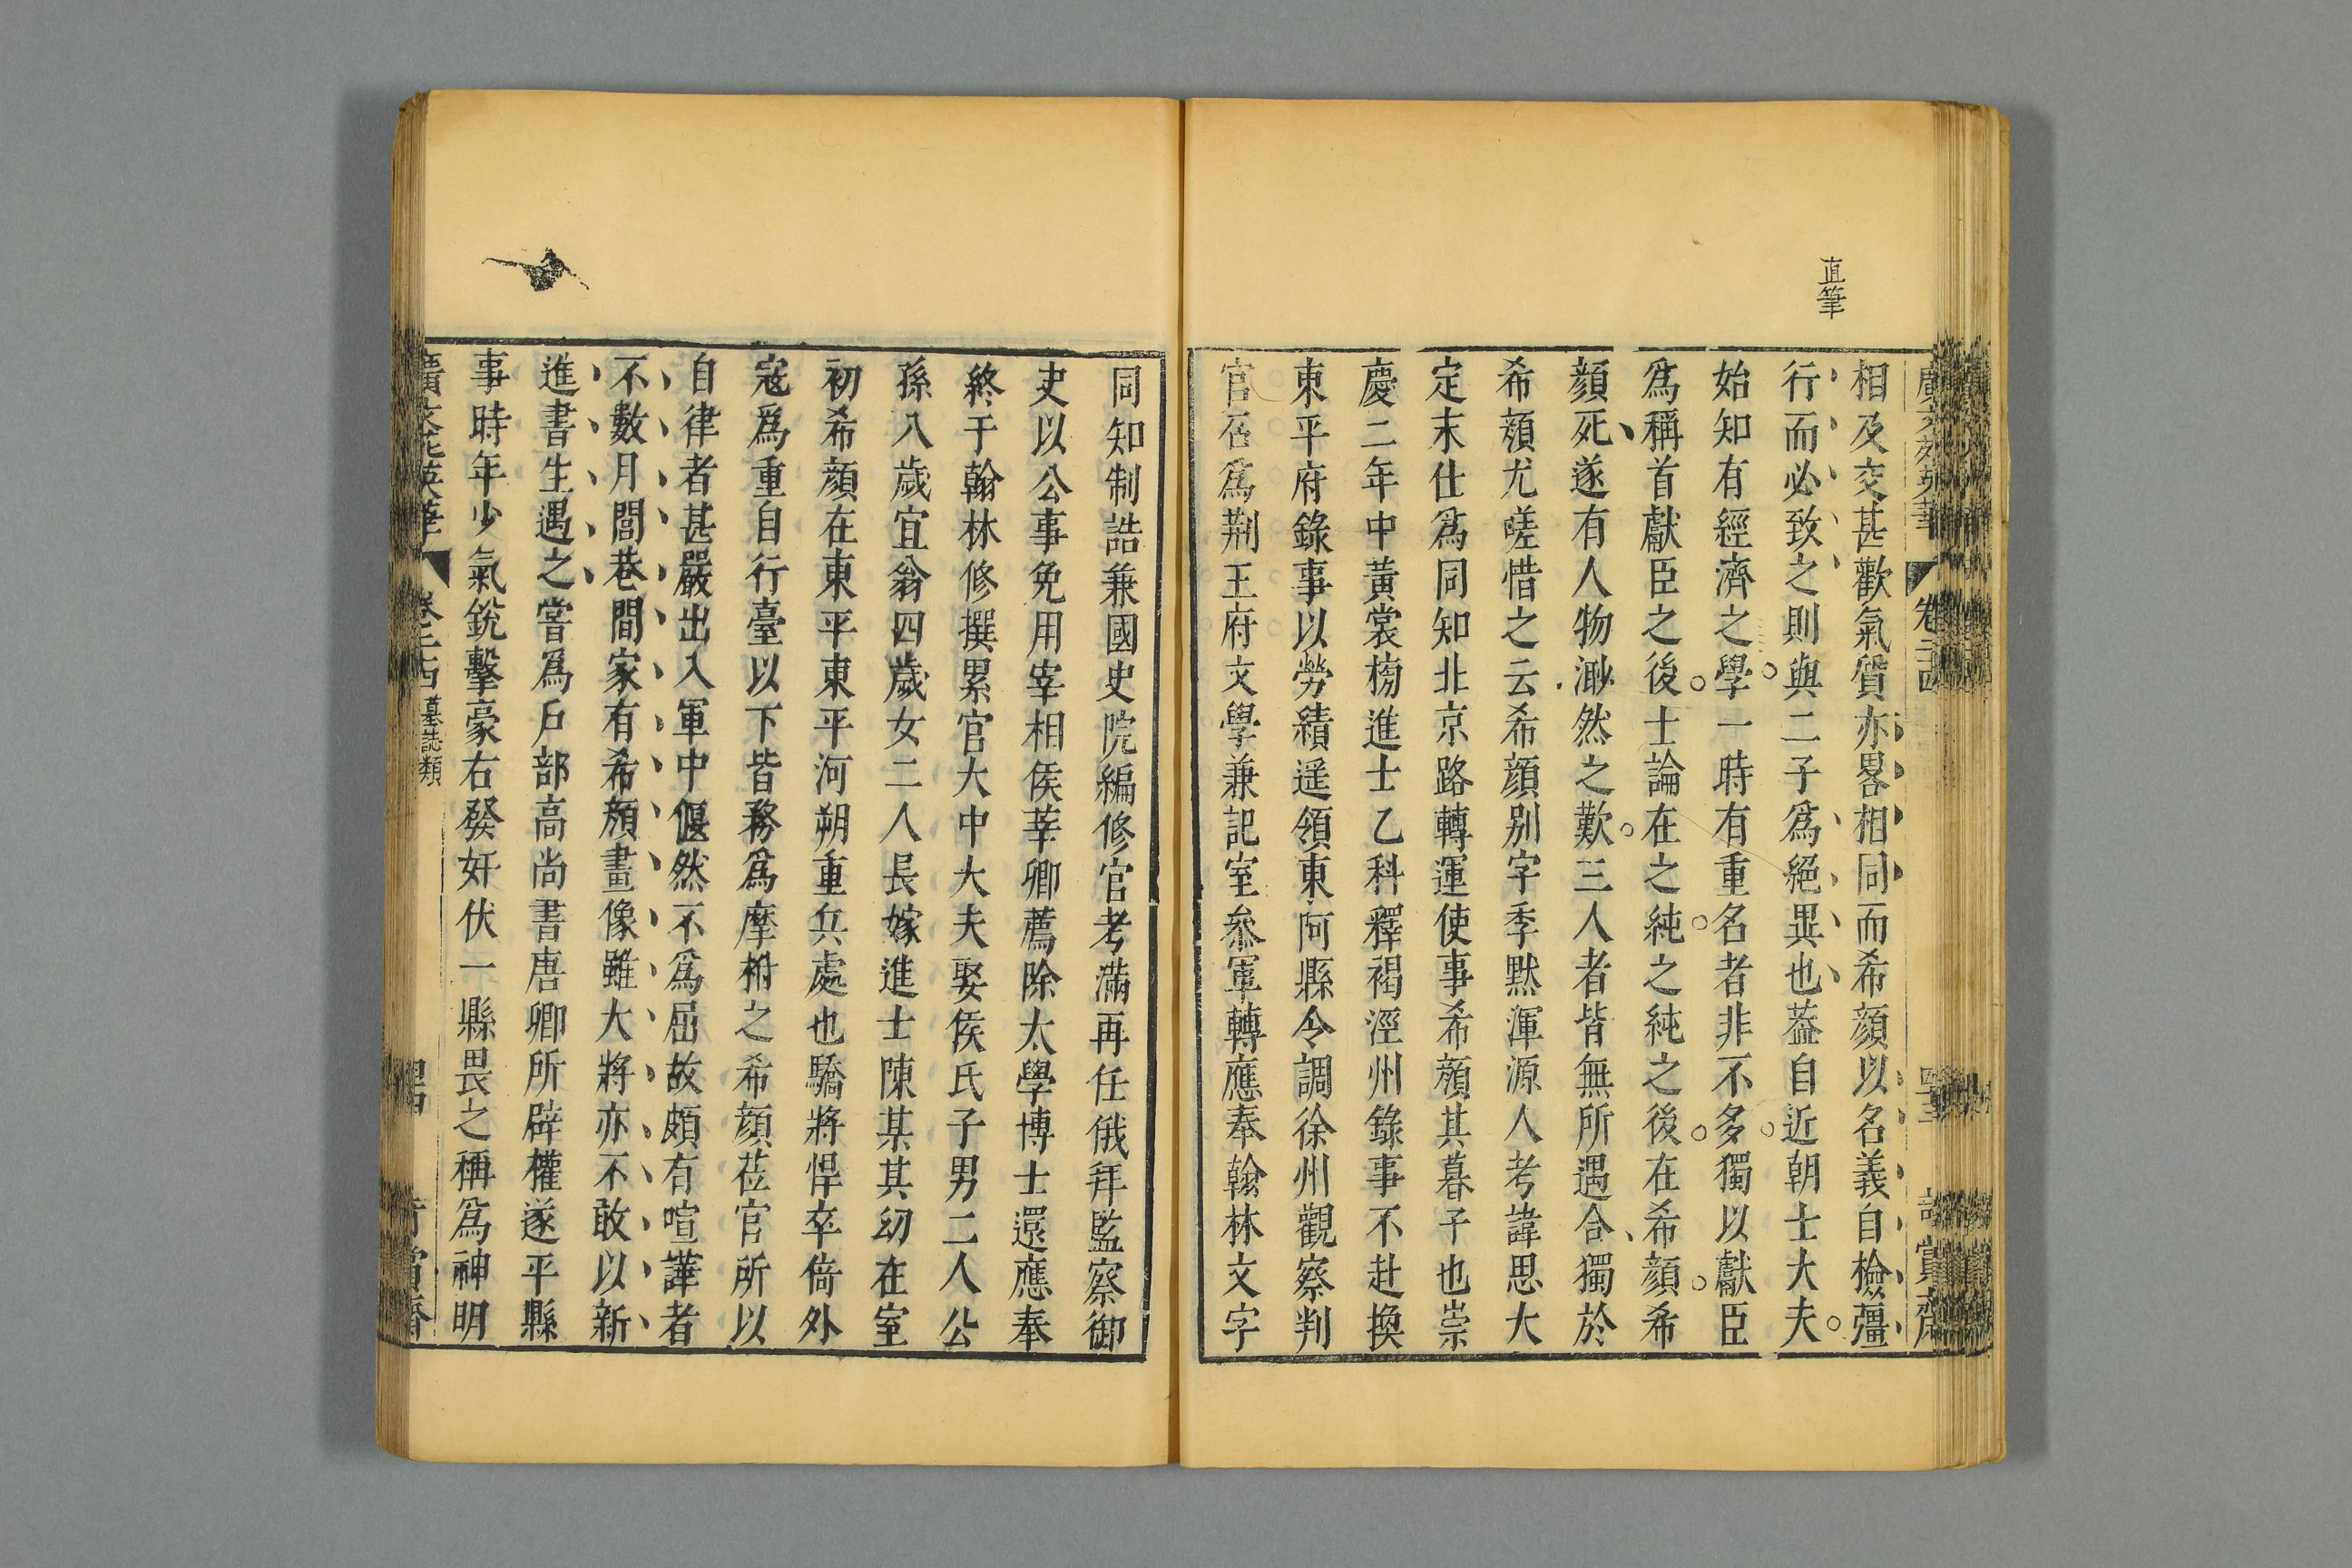 直筆
相及交甚歡氣質亦畧相同而希顏以名義自檢彊
行而必致之則與二子爲絕異也葢自近朝士大夫
始知有經濟之學一時有重名者非不多獨以獻臣
爲稱首獻臣之後士論在之純之純之後在希顏希
顏死遂有人物渺然之歎三人者皆無所遇合獨於
希顏尤嗟惜之云希顏別字季默渾源人考諱思大
定末仕爲同知北京路轉運使事希顏其暮子也崇
慶二年中黃裳榜進士乙科釋褐涇州錄事不赴換
東平府錄事以勞績遥領東阿縣令調徐州觀察判
官召爲荆王府文學兼記室叅軍轉應奉翰林文字
同知制誥兼國史院編修官考滿再任俄拜監察御
史以公事免用宰相侯莘卿薦除太學博士還應奉
終于翰林修撰累官大中大夫娶侯氏子男二人公
孫八歲宜翁四歲女二人長嫁進士陳某其幼在室
初希顏在東平東平河朔重兵處也驕將悍卒倚外
寇爲重自行臺以下皆務爲摩拊之希顏莅官所以
自律者甚嚴出入軍中偃然不爲屈故頗有喧譁者
不數月閭巷間家有希顏畫像雖大將亦不敢以新
進書生遇之嘗爲戶部高尚書唐卿所辟權遂平縣
事時年少氣銳擊豪右發奸伏一縣畏之稱爲神明
墓誌類